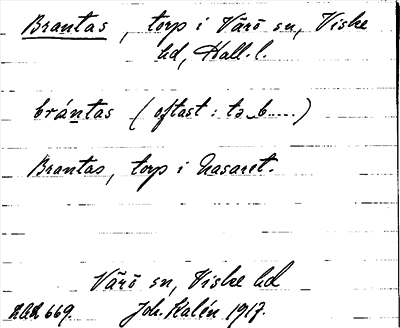 Brantas, torp i Värö sn, Viske
hd, Hall. l.
brántas (oftast: tə b.....)
Brantas, torp i Nasaret.
Värö sn, Viske hd
669. Joh. Kalén 1917.